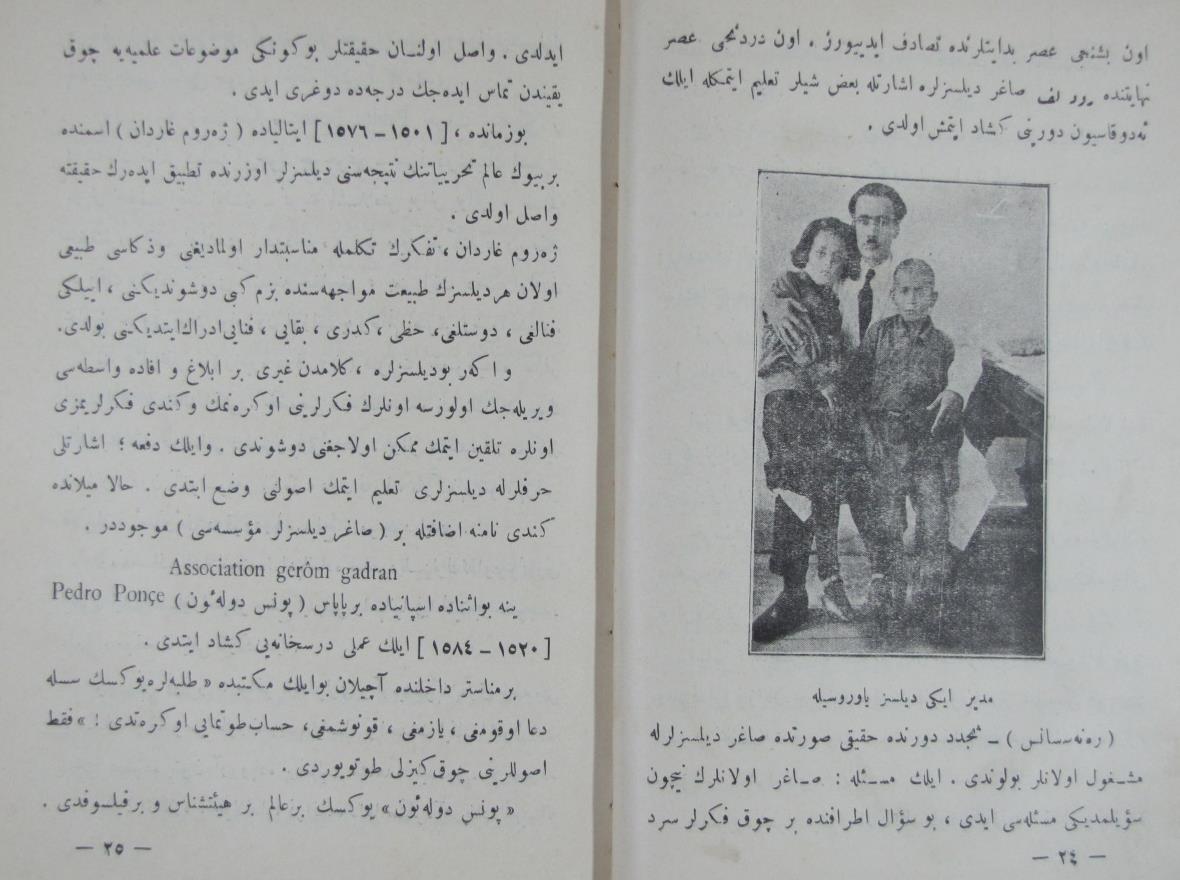 اون بشنجى عصر بدايتلرنده تصادف ايدييورز . اون دردنجى عصر
نهايتنده رودلف صاغر ديلسزلره اشارتله بعض شيلر تعليم ايتمكله ايلك
ئه‌دوقاسيون دورينى كشاد ايتمش اولدى .
مدير ايكى ديلسز ياوروسيله
( ره‌نه‌سسانس ) ــ تجدد دورنده حقيقى صورتده صاغر ديلسزلرله
مشـغول اولانلر بولوندى . ايلك مسـئله : صـاغر اولانلرك نيچون
سؤيلمديكى مسئله‌سى ايدى ، بو سؤال اطرافنده بر چوق فكرلر سرد
— ٢٤ —
ايدلدى . واصل اولنسان حقيقتلر بوكونكى موضوعات علميه‌يه چوق
يقيندن تماس ايده‌جك درجه‌ده دوغرى ايدى .
بوزمانده ، [ ١٥٠١ – ١٥٧٦ ] ايتالياده ( ژه‌روم غاردان ) اسمنده
بربيوك عالم تحرياتنك نتيجه‌سنى ديلسزلر اوزرنده تطبيق ايده‌رك حقيقته
واصل اولدى .
ژه‌روم غاردان ، تفكرك تكلمله مناسبتدار اولماديغنى وذكاسى طبيعى
اولان هرديلسزك طبيعت مواجهه‌سنده بزم كبى دوشونديكنى ، اييلكى
فنالغى ، دوستلغى، حظى ،كدرى ، بقايى ، فنايى‌ادراك‌ايتديكنى بولدى.
و ا كه‌ر بوديلسزلره ، كلامدن غيرى بر ابلاغ و افاده واسطه‌سى
ويريله‌جك اولورسه اونلرك فكرلرينى اوكره‌نمك وكندى فكرلريمزى
اونلره تلقين ايتمك ممكن اولاجغنى دوشوندى . وايلك دفعه ؛ اشارتلى
حرفلرله ديلسزلرى تعليم ايتمك اصولنى وضع ايتدى . حالا ميلانده
كندى نامنه اضافتله بر ( صاغر ديلسزلر مؤسسه‌سى ) موجوددر .
Association gerôm gadran
ينه بواثناده اسپانياده برپاپاس ( پونس دوله‌ئون ) Pedro Ponçe
[ ١٥٢٠ – ١٥٨٤ ] ايلك عملى درسخانه‌يى كشاد ايتدى .
برمناستر داخلنده آچيلان بوايلك مكتبده « طلبه‌لره‌يوكسك سسله
دعا اوقومغى ، يازمغى ، قونوشمغى ، حساب‌طوتمايى اوكره‌تدى ! » فقط
اصوللرينى چوق كيزلى طوتويوردى .
« پونس دوله‌ئون » يوكسك برعالم بر هيئتشناس و برفيلسوفدى .
— ٢٥ —